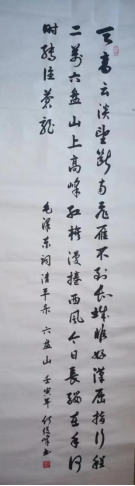 天高云淡望断南飞雁不到长城非好汉屈指行程
二萬六盘山上高峰红旗漫捲西风今日長缨在手何
时缚住苍龙
毛泽东词清平乐 六盘山 壬寅年